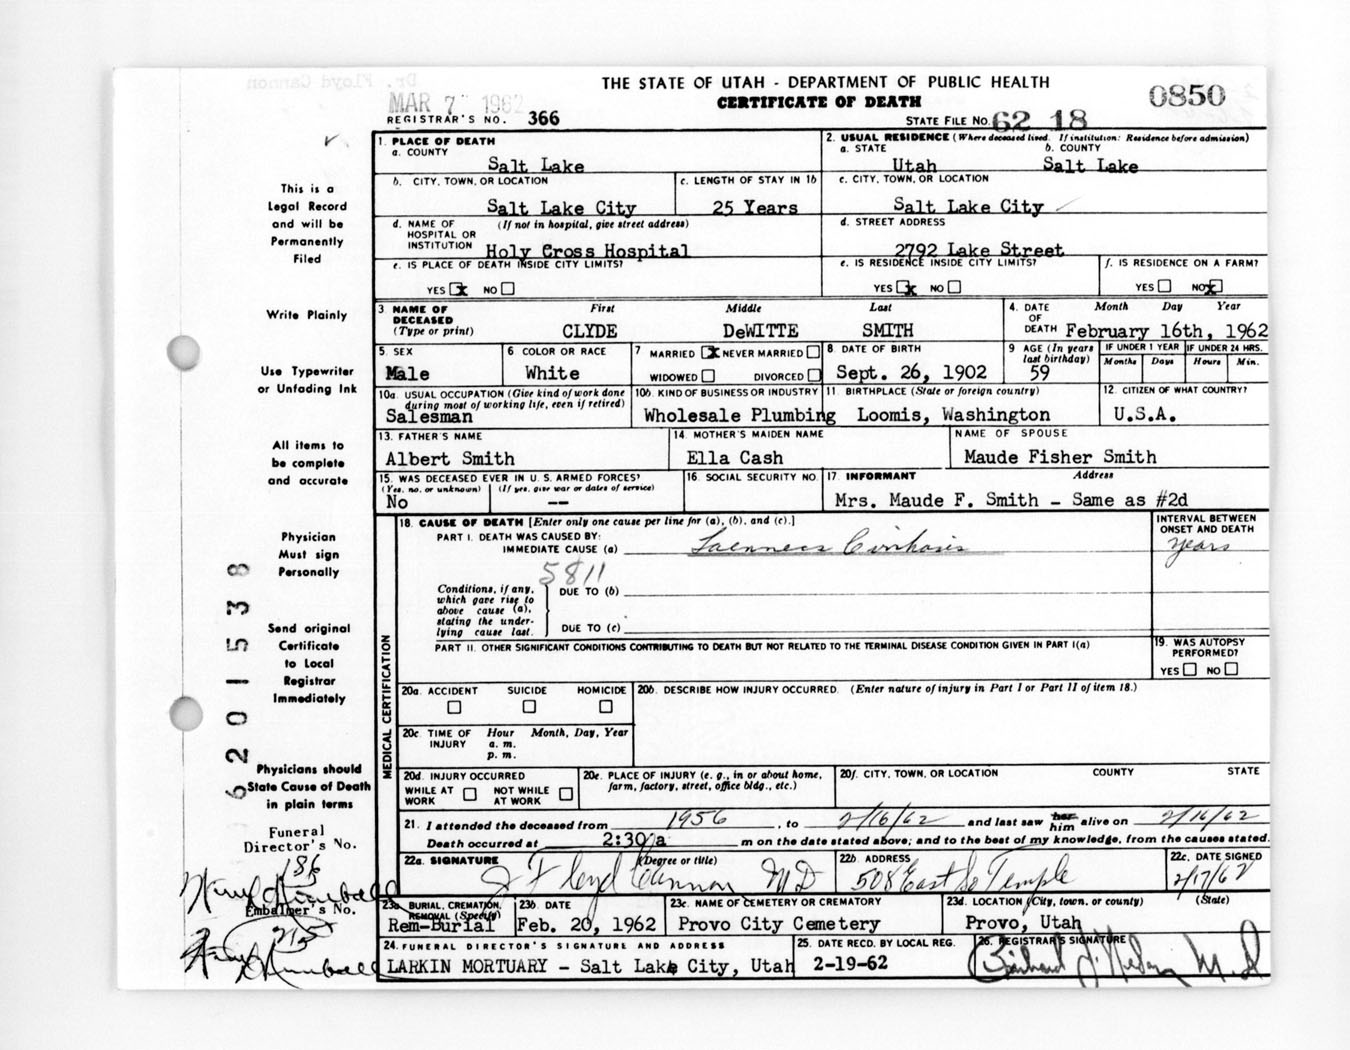 THE STATE OF UTAH - DEPARTMENT OF PUBLIC HEALTH
CERTIFICATE OF DEATH
0850
MAR 7 1962
REGISTRAR'S NO. 366
STATE FILE NO. 62 18
This is a
Legal Record
and will be
Permanently
Filed
Write Plainly
Use Typewriter
or Unfading Ink
All items to
be complete
and accurate
Physician
Must sign
Personally
Send original
Certificate
to Local
Registrar
Immediately
Physicians should
State Cause of Death
in plain terms
Funeral
Director's No.
186
Embalmer's No.
215
6201538
1. PLACE OF DEATH
a. COUNTY
Salt Lake
2. USUAL RESIDENCE (Where deceased lived. If institution: Residence before admission)
a. STATE b. COUNTY
Utah Salt Lake
b. CITY, TOWN, OR LOCATION
Salt Lake City
c. LENGTH OF STAY IN 1b
25 Years
c. CITY, TOWN, OR LOCATION
Salt Lake City
d. NAME OF HOSPITAL OR INSTITUTION (If not in hospital, give street address)
Holy Cross Hospital
d. STREET ADDRESS
2792 Lake Street
e. IS PLACE OF DEATH INSIDE CITY LIMITS?
YES x NO
e. IS RESIDENCE INSIDE CITY LIMITS?
YES x NO
f. IS RESIDENCE ON A FARM?
YES NO x
3. NAME OF DECEASED (Type or print)
First Middle Last
CLYDE DeWITTE SMITH
4. DATE OF DEATH Month Day Year
February 16th, 1962
5. SEX
Male
6 COLOR OR RACE
White
7 MARRIED x NEVER MARRIED
WIDOWED DIVORCED
8. DATE OF BIRTH
Sept. 26, 1902
9 AGE (In years last birthday)
59
IF UNDER 1 YEAR
Months Days
IF UNDER 24 HRS.
Hours Min.
10a. USUAL OCCUPATION (Give kind of work done during most of working life, even if retired)
Salesman
10b. KIND OF BUSINESS OR INDUSTRY
Wholesale Plumbing
11 BIRTHPLACE (State or foreign country)
Loomis, Washington
12. CITIZEN OF WHAT COUNTRY?
U.S.A.
13. FATHER'S NAME
Albert Smith
14 MOTHER'S MAIDEN NAME
Ella Cash
NAME OF SPOUSE
Maude Fisher Smith
15. WAS DECEASED EVER IN U. S. ARMED FORCES?
(Yes, no. or unknown) (If yes, give war or dates of service)
No --
16. SOCIAL SECURITY NO.
17. INFORMANT Address
Mrs. Maude F. Smith - Same as #2d
MEDICAL CERTIFICATION
18. CAUSE OF DEATH [Enter only one cause per line for (a), (b), and (c).]
PART I. DEATH WAS CAUSED BY:
IMMEDIATE CAUSE (a) Laennecs Cirrhosis
INTERVAL BETWEEN ONSET AND DEATH
years
5811
Conditions, if any, which gave rise to above cause (a), stating the underlying cause last.
DUE TO (b)
DUE TO (c)
PART II. OTHER SIGNIFICANT CONDITIONS CONTRIBUTING TO DEATH BUT NOT RELATED TO THE TERMINAL DISEASE CONDITION GIVEN IN PART I(a)
19. WAS AUTOPSY PERFORMED?
YES NO
20a. ACCIDENT SUICIDE HOMICIDE
20b. DESCRIBE HOW INJURY OCCURRED. (Enter nature of injury in Part I or Part II of item 18.)
20c. TIME OF INJURY Hour Month, Day, Year
a. m.
p. m.
20d. INJURY OCCURRED
WHILE AT WORK NOT WHILE AT WORK
20e. PLACE OF INJURY (e. g., in or about home, farm, factory, street, office bldg., etc.)
20f. CITY, TOWN, OR LOCATION COUNTY STATE
21. I attended the deceased from 1956, to 2/16/62 and last saw her him alive on 2/16/62
Death occurred at 2:30 a m on the date stated above; and to the best of my knowledge, from the causes stated.
22a. SIGNATURE (Degree or title)
J Floyd Cannon MD
22b. ADDRESS
508 East So Temple
22c. DATE SIGNED
2/17/62
23a BURIAL, CREMATION, REMOVAL (Specify)
Rem-Burial
23b. DATE
Feb. 20, 1962
23c. NAME OF CEMETERY OR CREMATORY
Provo City Cemetery
23d. LOCATION (City, town, or county) (State)
Provo, Utah
24. FUNERAL DIRECTOR'S SIGNATURE AND ADDRESS
LARKIN MORTUARY - Salt Lake City, Utah
25. DATE RECD. BY LOCAL REG.
2-19-62
26. REGISTRAR'S SIGNATURE
M.D